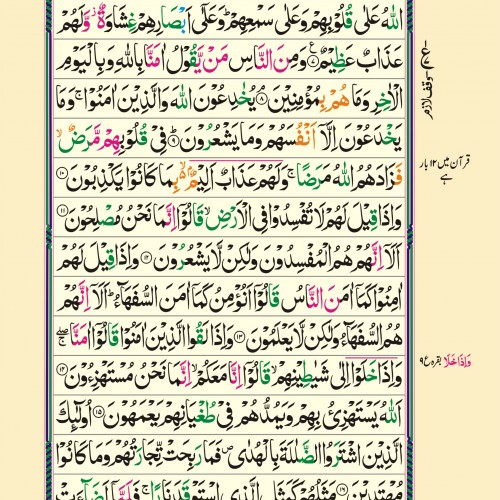 اللّٰهُ عَلٰى قُلُوْبِهِمْ وَعَلٰى سَمْعِهِمْ ؕ وَعَلٰۤى اَبْصَارِهِمْ غِشَاوَةٌ ؗ وَّلَهُمْ
عَذَابٌ عَظِيْمٌ ﴿۷﴾ وَمِنَ النَّاسِ مَنْ يَّقُوْلُ اٰمَنَّا بِاللّٰهِ وَبِالْيَوْمِ
الْاٰخِرِ وَمَا هُمْ بِمُؤْمِنِيْنَ ﴿۸﴾ يُخٰدِعُوْنَ اللّٰهَ وَالَّذِيْنَ اٰمَنُوْا ۚ وَمَا
يَخْدَعُوْنَ اِلَّاۤ اَنْفُسَهُمْ وَمَا يَشْعُرُوْنَ ﴿۹﴾ فِيْ قُلُوْبِهِمْ مَّرَضٌ ۙ
فَزَادَهُمُ اللّٰهُ مَرَضًا ۚ وَلَهُمْ عَذَابٌ اَلِيْمٌۢ ۙ۬ بِمَا كَانُوْا يَكْذِبُوْنَ ﴿۱۰﴾
وَاِذَا قِيْلَ لَهُمْ لَا تُفْسِدُوْا فِي الْاَرْضِ ۙ قَالُوْۤا اِنَّمَا نَحْنُ مُصْلِحُوْنَ ﴿۱۱﴾
اَلَاۤ اِنَّهُمْ هُمُ الْمُفْسِدُوْنَ وَلٰكِنْ لَّا يَشْعُرُوْنَ ﴿۱۲﴾ وَاِذَا قِيْلَ لَهُمْ
اٰمِنُوْا كَمَاۤ اٰمَنَ النَّاسُ قَالُوْۤا اَنُؤْمِنُ كَمَاۤ اٰمَنَ السُّفَهَآءُ ؕ اَلَاۤ اِنَّهُمْ
هُمُ السُّفَهَآءُ وَلٰكِنْ لَّا يَعْلَمُوْنَ ﴿۱۳﴾ وَاِذَا لَقُوا الَّذِيْنَ اٰمَنُوْا قَالُوْۤا اٰمَنَّا ۚۖ
وَاِذَا خَلَوْا اِلٰى شَيٰطِيْنِهِمْ ۙ قَالُوْۤا اِنَّا مَعَكُمْ ۙ اِنَّمَا نَحْنُ مُسْتَهْزِءُوْنَ ﴿۱۴﴾
اَللّٰهُ يَسْتَهْزِئُ بِهِمْ وَيَمُدُّهُمْ فِيْ طُغْيَانِهِمْ يَعْمَهُوْنَ ﴿۱۵﴾ اُولٰٓئِكَ
الَّذِيْنَ اشْتَرَوُا الضَّلٰلَةَ بِالْهُدٰى ۪ فَمَا رَبِحَتْ تِّجَارَتُهُمْ وَمَا كَانُوْا
مُهْتَدِيْنَ ﴿۱۶﴾ مَثَلُهُمْ كَمَثَلِ الَّذِي اسْتَوْقَدَ نَارًا ۚ فَلَمَّاۤ اَضَآءَتْ
وقف لازم
قرآن میں ۱۲ بار
ہے
وَاِذَا خَلَا بقره ع ۹